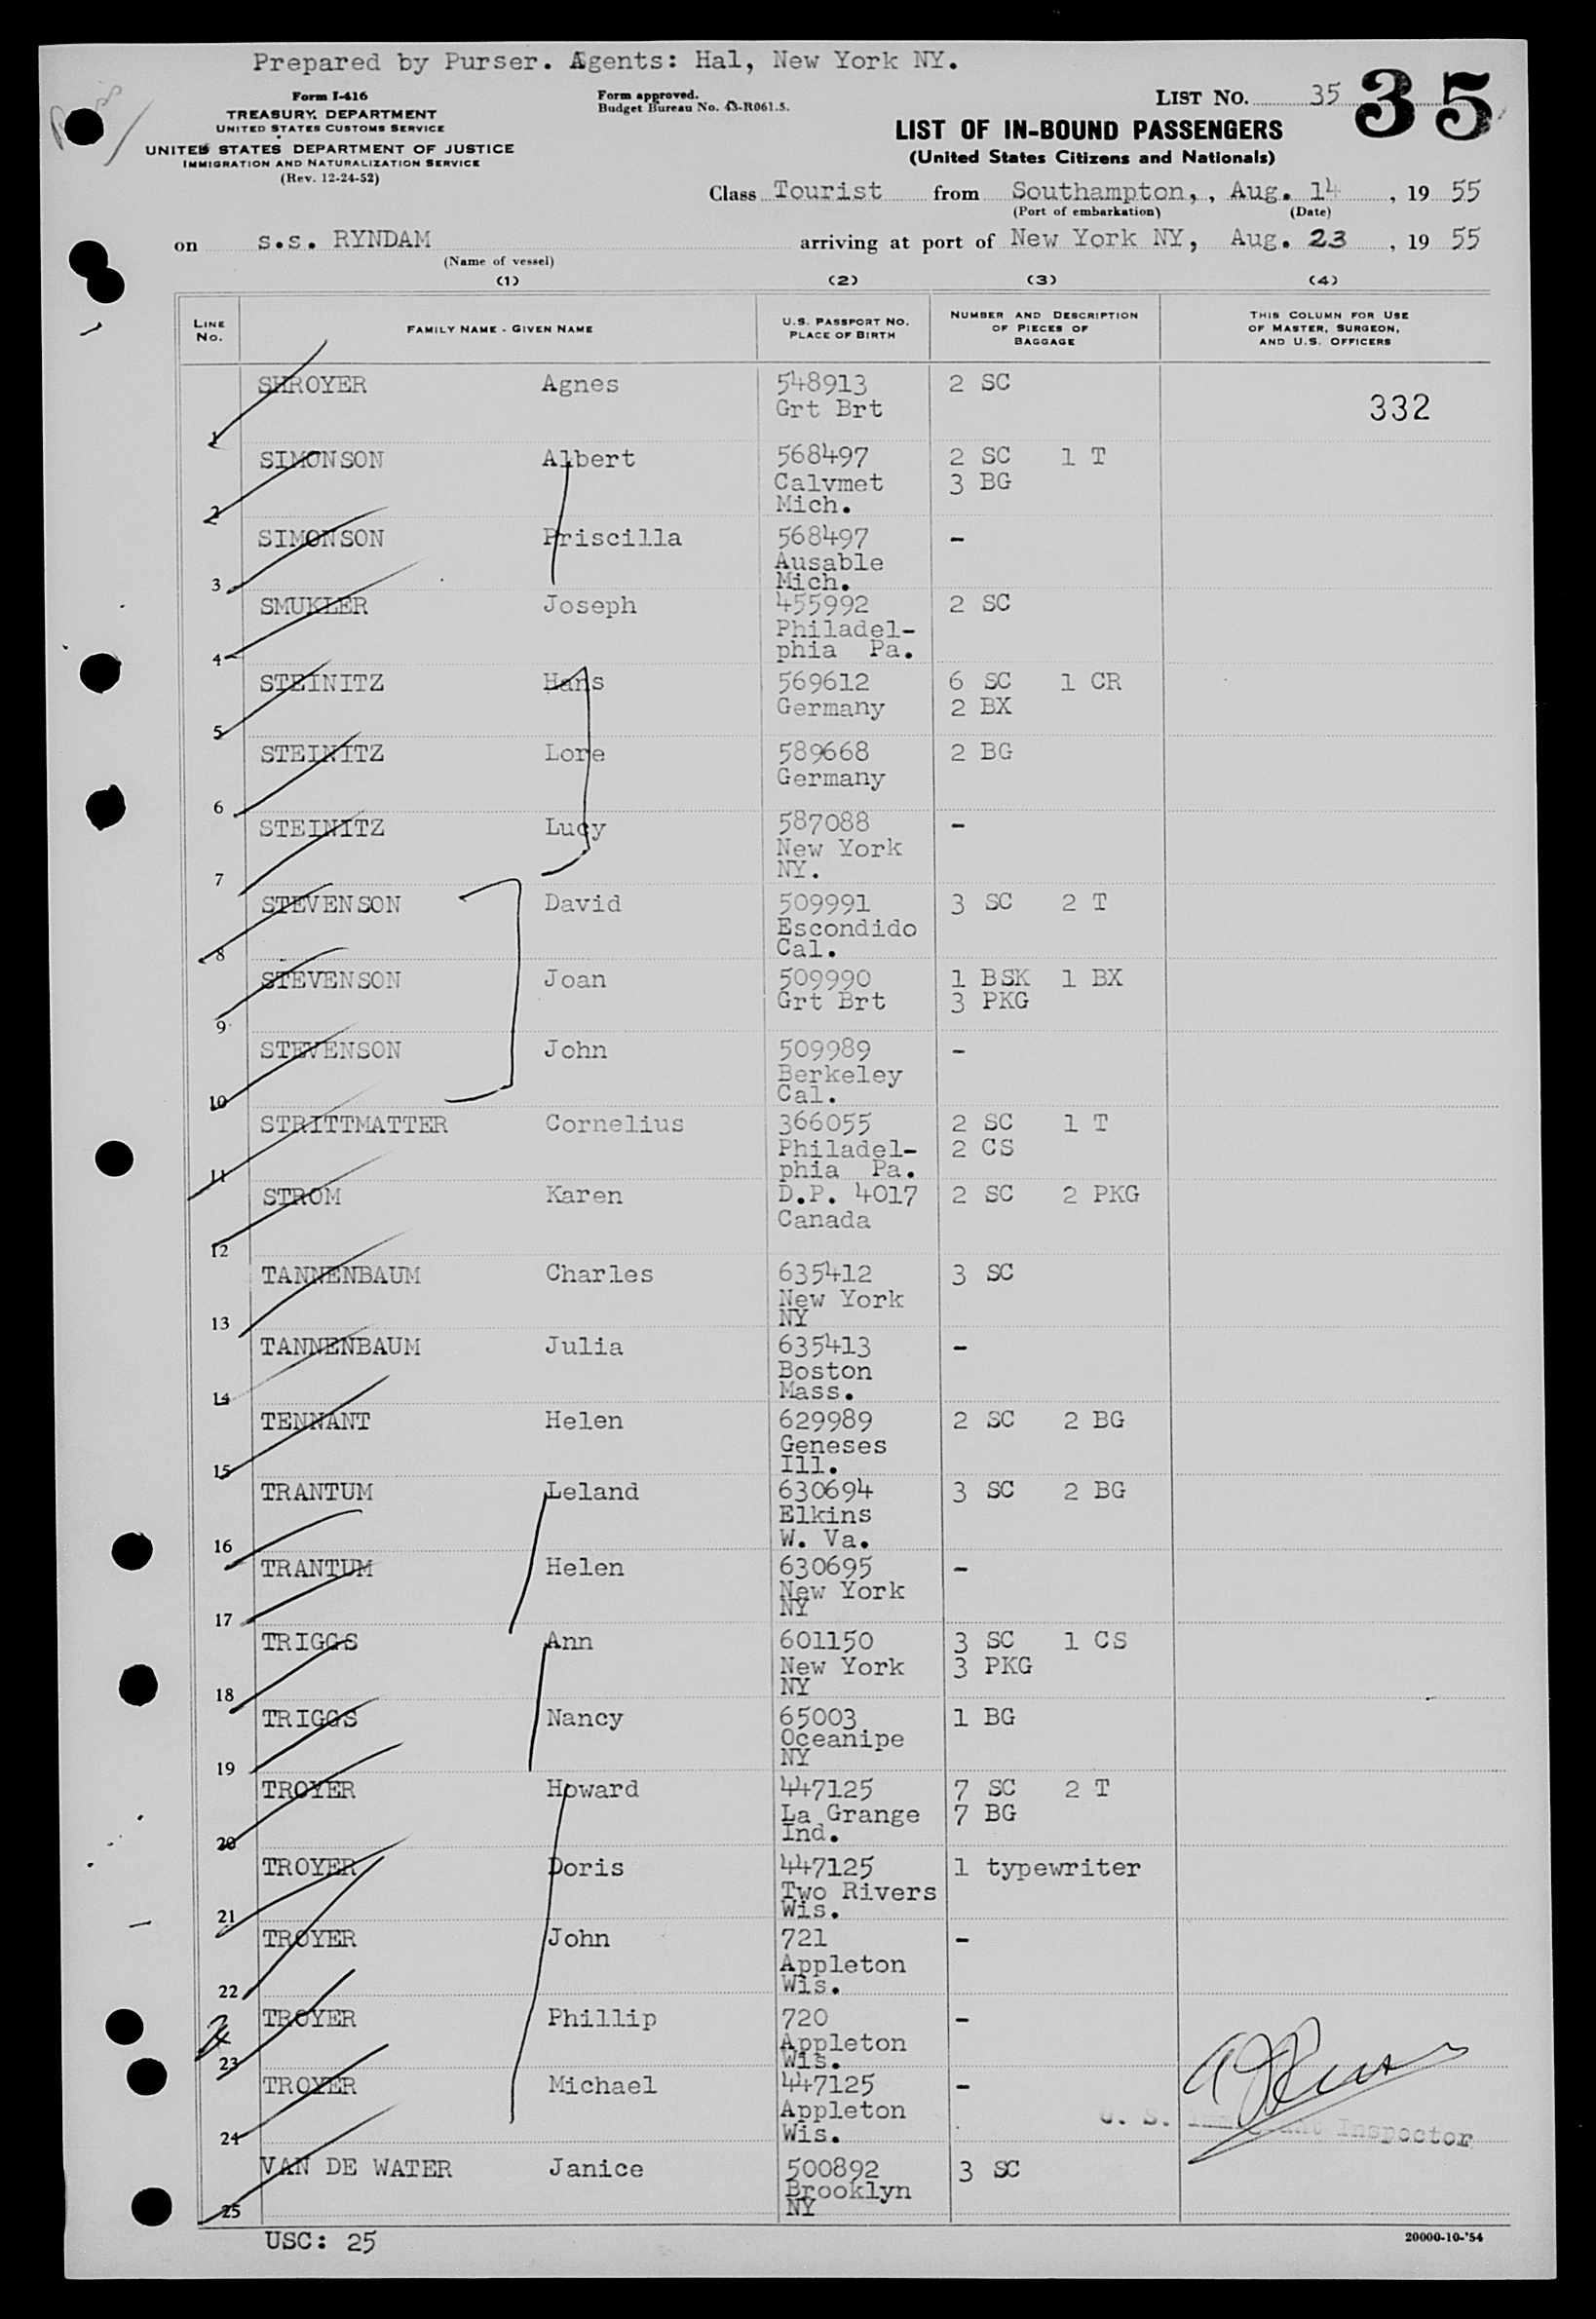 Prepared by Purser. Agents: Hal, New York NY.
Form I-416
TREASURY DEPARTMENT
UNITED STATES CUSTOMS SERVICE
UNITED STATES DEPARTMENT OF JUSTICE
IMMIGRATION AND NATURALIZATION SERVICE
(Rev. 12-24-52)
Form approved.
Budget Bureau No. 43-R061.5.
LIST NO. 35 35
LIST OF IN-BOUND PASSENGERS
(United States Citizens and Nationals)
Class Tourist from Southampton, , Aug. 14 , 19 55
(Port of embarkation) (Date)
on s.s. RYNDAM arriving at port of New York NY, Aug. 23 , 19 55
(Name of vessel)
(1) (2) (3) (4)
LINE NO. FAMILY NAME - GIVEN NAME U.S. PASSPORT NO. PLACE OF BIRTH NUMBER AND DESCRIPTION OF PIECES OF BAGGAGE THIS COLUMN FOR USE OF MASTER, SURGEON, AND U.S. OFFICERS
SHROYER Agnes 548913 2 SC
Grt Brt 332
1
SIMONSON Albert 568497 2 SC 1 T
Calvmet 3 BG
2 Mich.
SIMONSON Priscilla 568497 -
Ausable
3 Mich.
SMUKLER Joseph 455992 2 SC
Philadel-
4 phia Pa.
STEINITZ Hans 569612 6 SC 1 CR
Germany 2 BX
5
STEINITZ Lore 589668 2 BG
Germany
6
STEINITZ Lucy 587088 -
New York
7 NY.
STEVENSON David 509991 3 SC 2 T
Escondido
8 Cal.
STEVENSON Joan 509990 1 BSK 1 BX
Grt Brt 3 PKG
9
STEVENSON John 509989 -
Berkeley
10 Cal.
STRITTMATTER Cornelius 366055 2 SC 1 T
Philadel- 2 CS
11 phia Pa.
STROM Karen D.P. 4017 2 SC 2 PKG
Canada
12
TANNENBAUM Charles 635412 3 SC
New York
13 NY
TANNENBAUM Julia 635413 -
Boston
14 Mass.
TENNANT Helen 629989 2 SC 2 BG
Geneses
15 Ill.
TRANTUM Leland 630694 3 SC 2 BG
Elkins
16 W. Va.
TRANTUM Helen 630695 -
New York
17 NY
TRIGGS Ann 601150 3 SC 1 CS
New York 3 PKG
18 NY
TRIGGS Nancy 65003 1 BG
Oceanipe
19 NY
TROYER Howard 447125 7 SC 2 T
La Grange 7 BG
20 Ind.
TROYER Doris 447125 1 typewriter
Two Rivers
21 Wis.
TROYER John 721 -
Appleton
22 Wis.
TROYER Phillip 720 -
Appleton
23 Wis.
TROYER Michael 447125 -
Appleton
U. S. Immigrant Inspector
24 Wis.
VAN DE WATER Janice 500892 3 SC
Brooklyn
25 NY
USC: 25
20000-10-'54